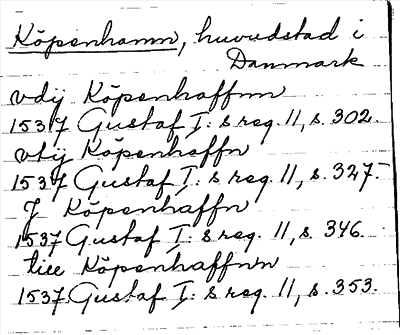 Köpenhamn, huvudstad i
Danmark
vdij Köpenhaffnn
1537 Gustaf I: s reg. 11, s. 302.
vtij Köpenhaffn
1537 Gustaf I: s reg. 11, s. 327.
J Köpenhaffn
1537 Gustaf I: s reg. 11, s. 346.
till Köpenhaffnn
1537 Gustaf I: s reg. 11, s. 353.